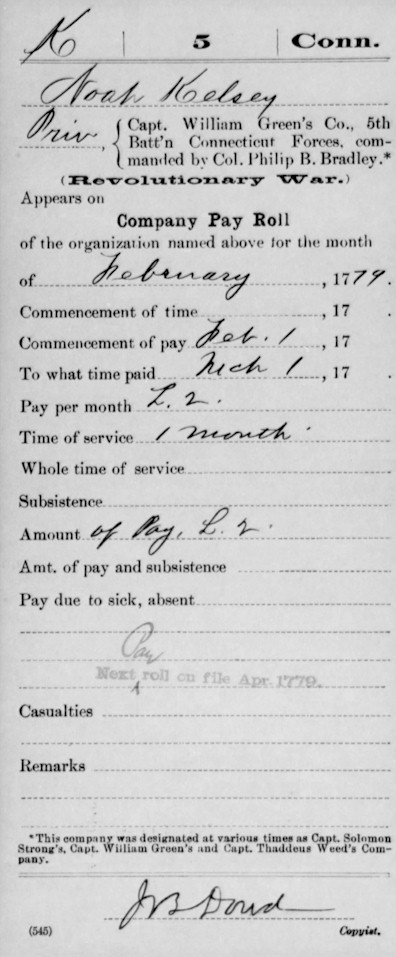 K | 5 | Conn.
Noah Kelsey
Priv, { Capt. William Green's Co., 5th
Batt'n Connecticut Forces, com-
manded by Col. Philip B. Bradley.*
(Revolutionary War.)
Appears on
Company Pay Roll
of the organization named above for the month
of February, 1779.
Commencement of time , 17 .
Commencement of pay Feb. 1, 17 .
To what time paid Mch 1, 17 .
Pay per month L. 2.
Time of service 1 month.
Whole time of service
Subsistence
Amount of Pay, L. 2.
Amt. of pay and subsistence
Pay due to sick, absent
Pay
Next ^ roll on file Apr. 1779.
Casualties
Remarks
*This company was designated at various times as Capt. Solomon
Strong's, Capt. William Green's and Capt. Thaddeus Weed's Com-
pany.
J B Dowd
(545) Copyist.